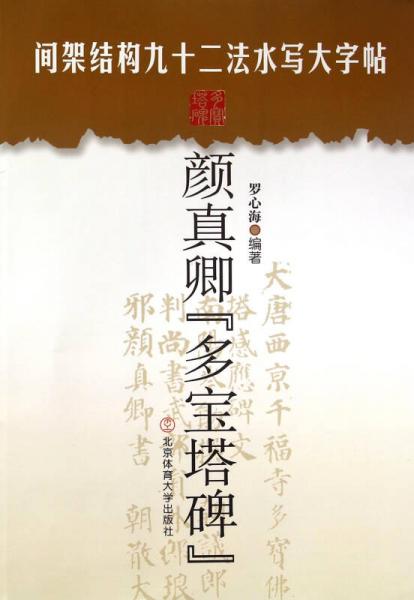 间架结构九十二法水写大字帖
多寶
塔碑
颜真卿『多宝塔碑』
罗心海 编著
北京体育大学出版社
大唐西京千福寺多寶佛
塔感應碑文
南陽岑勛
判尚書武部
郎琅
邪顏真卿書 朝散大